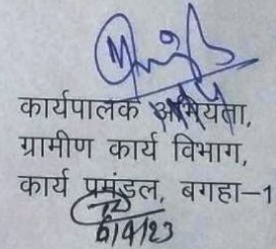 कार्यपालक अभियंता,
ग्रामीण कार्य विभाग,
कार्य प्रमंडल, बगहा–1
6/4/23